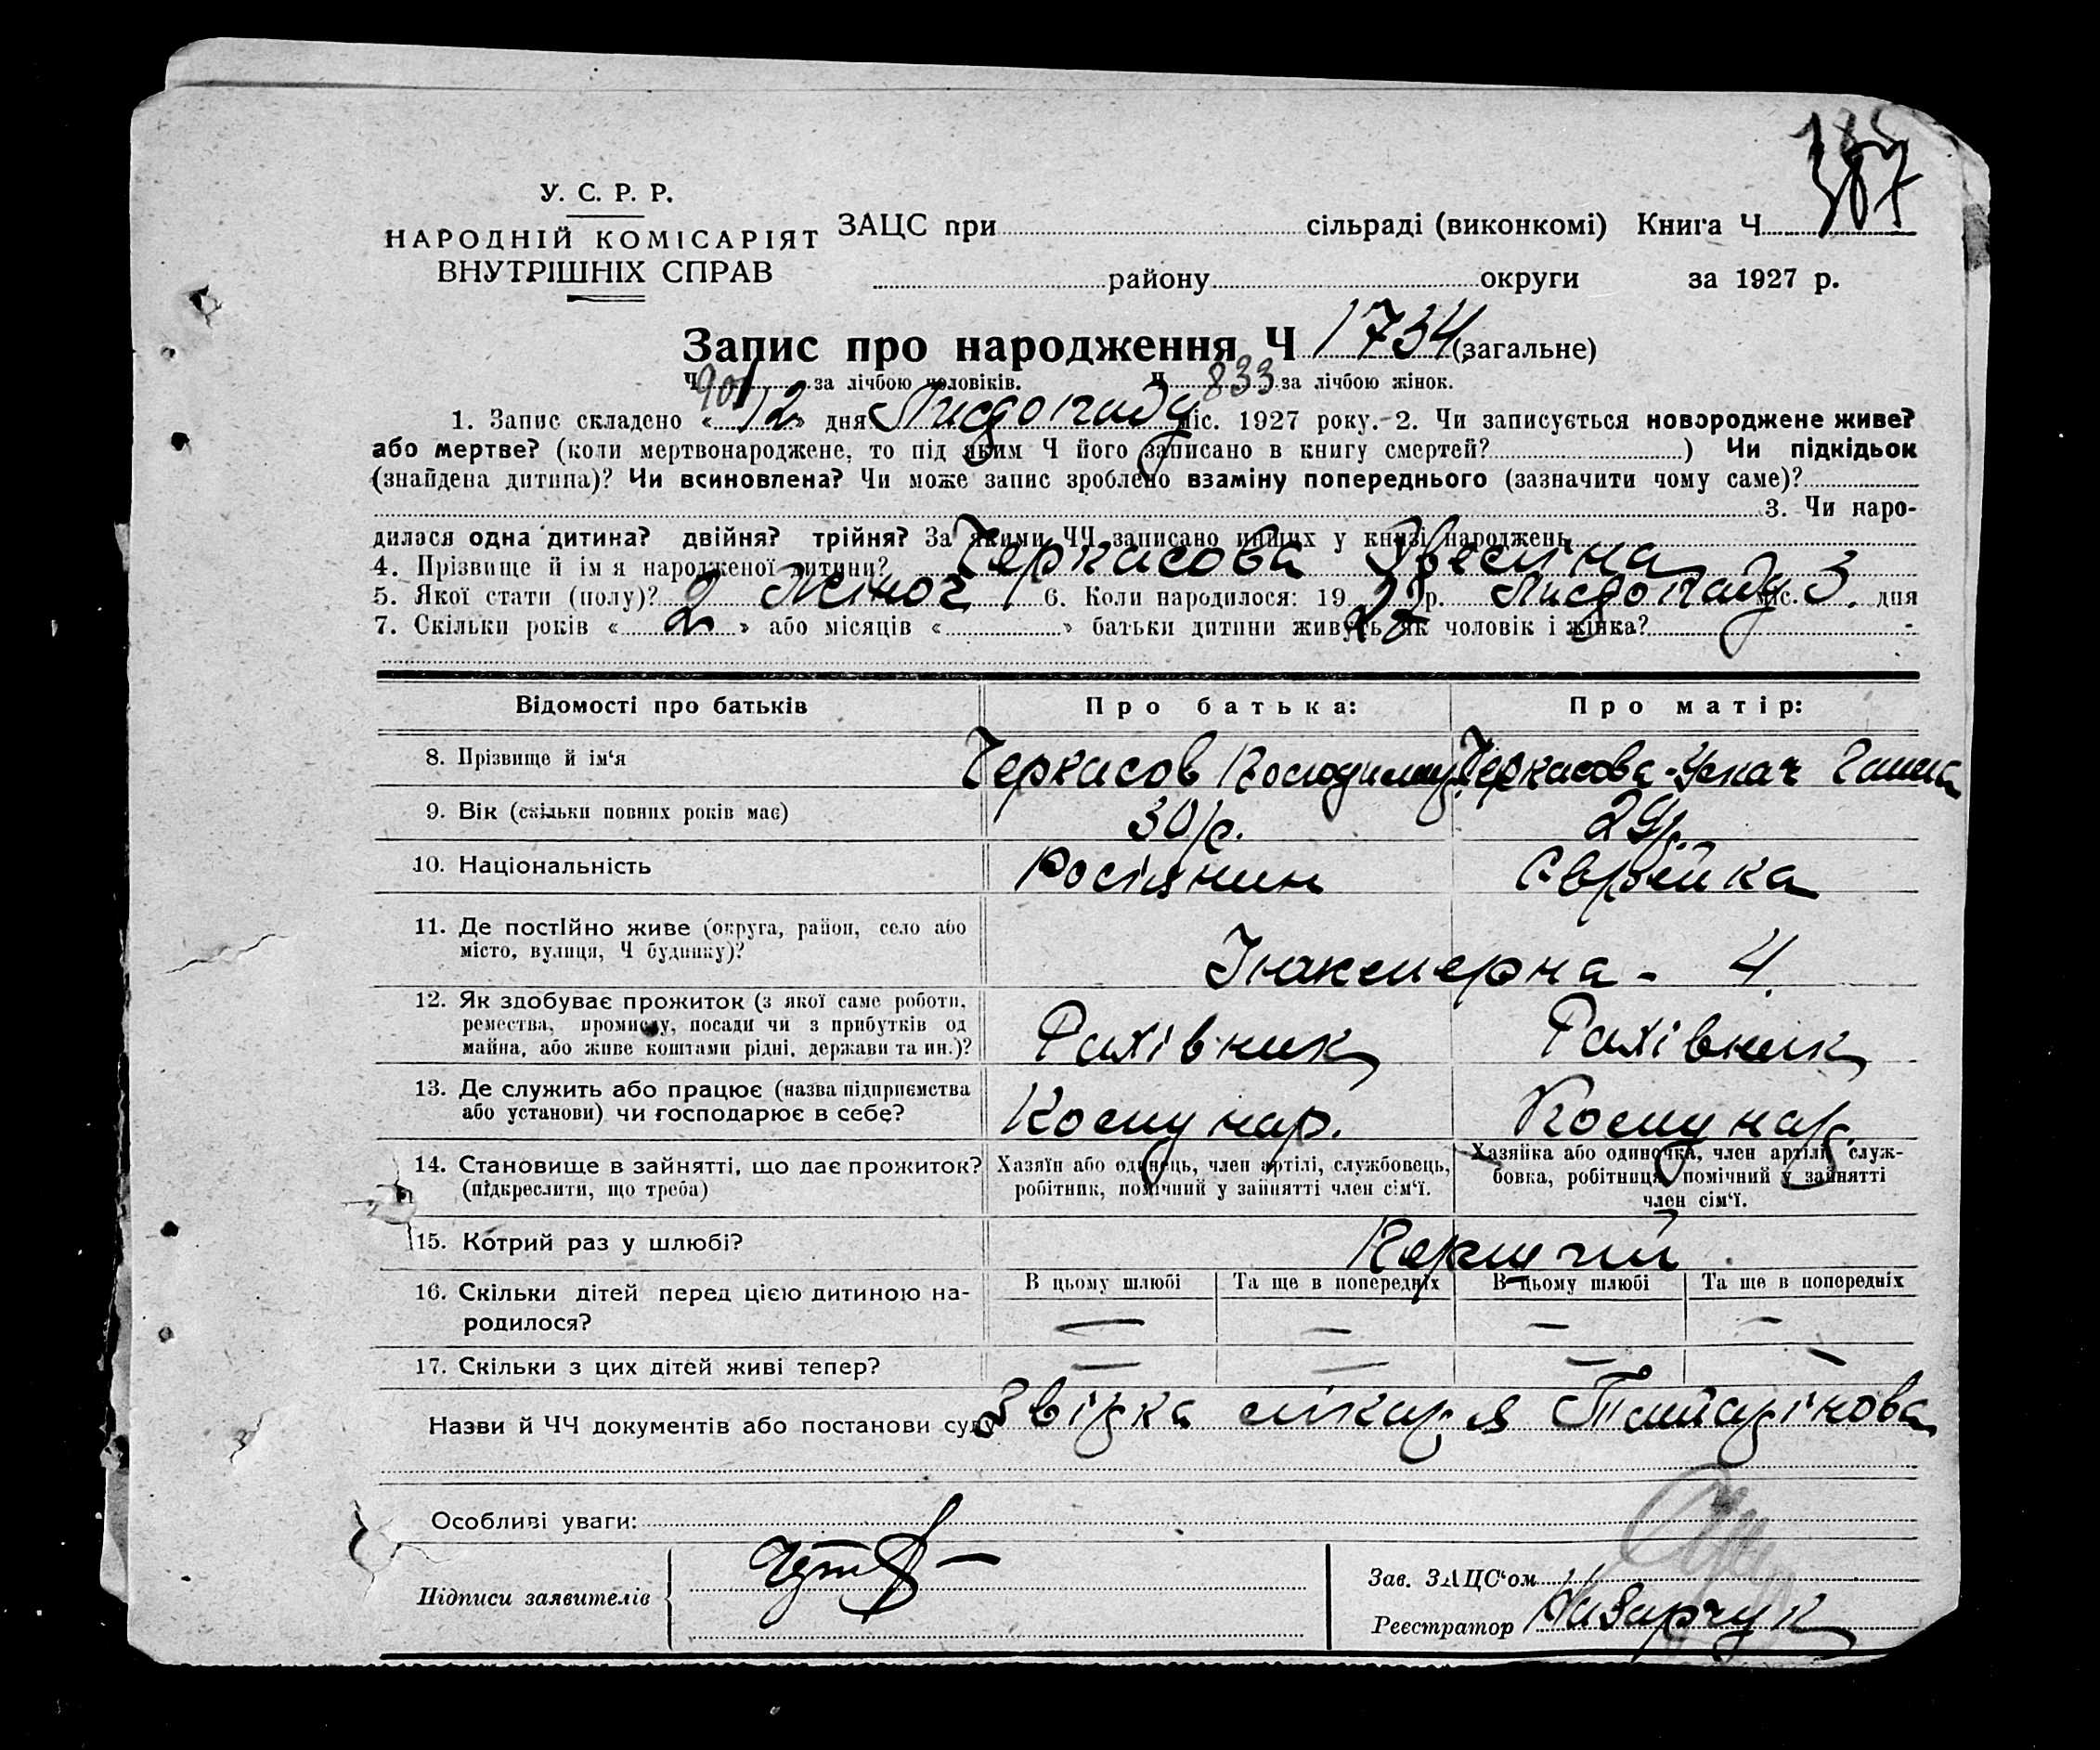 387
У. С. Р. Р.
НАРОДНІЙ КОМІСАРІЯТ
ВНУТРІШНІХ СПРАВ
ЗАЦС при сільраді (виконкомі) Книга Ч
району округи за 1927 р.
Запис про народження Ч 1734 (загальне)
Ч 901 за лічбою чоловіків. Ч 833 за лічбою жінок.
1. Запис складено « 12 » дня Листопаду міс. 1927 року.-2. Чи записується новороджене живе?
або мертве? (коли мертвонароджене, то під яким Ч його записано в книгу смертей? ) Чи підкідьок
(знайдена дитина)? Чи всиновлена? Чи може запис зроблено взаміну попереднього (зазначити чому саме)?
3. Чи наро-
дилася одна дитина? двійня? трійня? За якими ЧЧ записано инших у книзі народжень
4. Прізвище й ім я народженої дитини? Черкасова
5. Якої стати (полу)? 2 Жіноч 6. Коли народилося: 19 27 р. Листопаду міс. 3. дня
7. Скільки років « 2 » або місяців « » батьки дитини живуть як чоловік і жінка? -
Відомості про батьків Про батька: Про матір:
8. Прізвище й ім‘я Черкасов Володимир Черкасова-Ускач Ганна
9. Вік (скільки повних років має) 30 р. 29 р.
10. Національність Росіянин Єврейка
11. Де постійно живе (округа, район, село або
місто, вулиця, Ч будинку)? Інженерна - 4.
12. Як здобуває прожиток (з якої саме роботи,
ремества, промислу, посади чи з прибутків од
майна, або живе коштами рідні, держави та ин.)? Рахівник Рахівник
13. Де служить або працює (назва підприємства
або установи) чи господарює в себе? Комунар. Комунар.
14. Становище в зайнятті, що дає прожиток?
(підкреслити, що треба)
Хазяїн або одинець, член артілі, службовець,
робітник, помічний у зайнятті член сім‘ї.
Хазяйка або одиночка, член артілі, служ-
бовка, робітниця, помічний у зайнятті
член сім‘ї.
15. Котрий раз у шлюбі? Перший
В цьому шлюбі Та ще в попередніх В цьому шлюбі Та ще в попередніх
16. Скільки дітей перед цією дитиною на-
родилося? — — — —
17. Скільки з цих дітей живі тепер? — — — —
Назви й ЧЧ документів або постанови суду Звідка лікаря
Особливі уваги:
Підписи заявителів
Зав. ЗАЦС‘ом
Реєстратор Назарчук